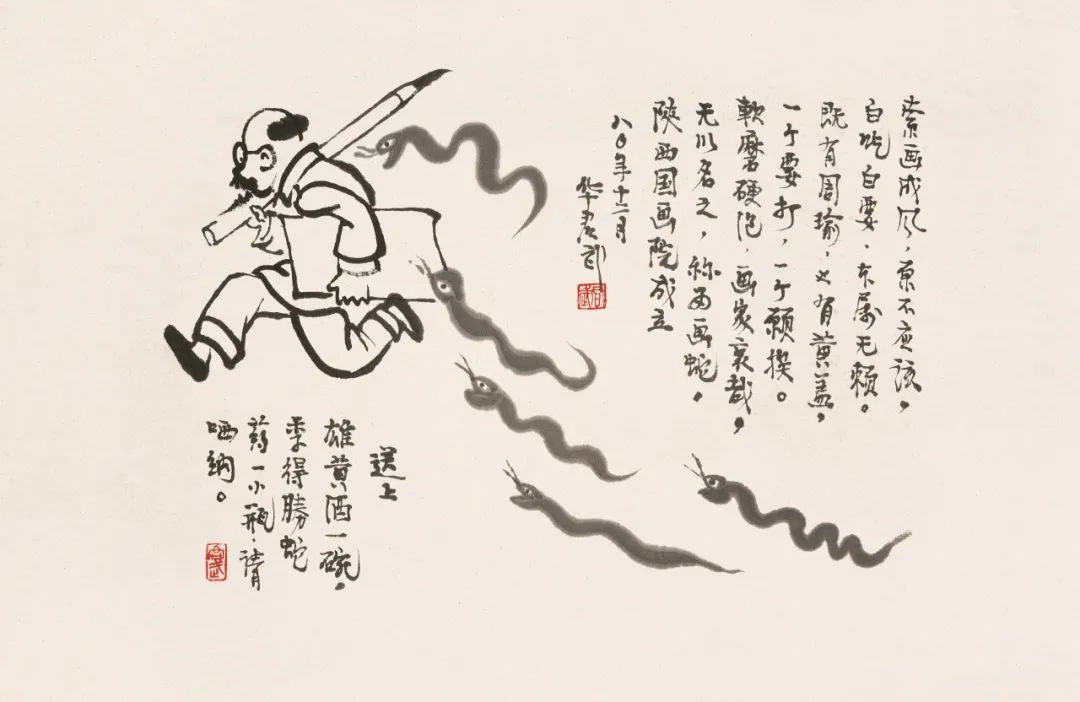 索画成风,原不应该,
白吃白要,亦属无赖。
既有周瑜,也有黄盖,
一个要打,一个願挨。
軟磨硬泡,画家哀哉,
无以名之,称为画蛇。
陕西国画院成立
八〇年十二月
华君武
送上
雄黄酒一碗,
季得勝蛇
药一小瓶,请
哂纳。